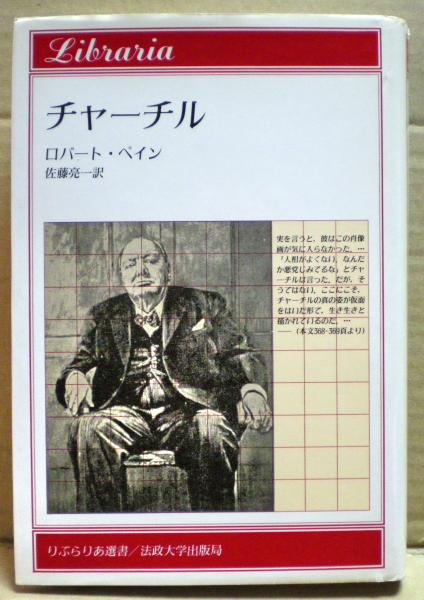 Libraria
チャーチル
ロバート・ペイン
佐藤亮一訳
実を言うと、彼はこの肖像
画が気に入らなかった。…
「人相がよくない。なんだ
か悪党じみてるな」とチャ
ーチルは言った。だが、そ
うではない。ここにこそ、
チャーチルの真の姿が仮面
をはいだ形で、生き生きと
描かれているのだ。…
——（本文368-369頁より）
りぶらりあ選書／法政大学出版局